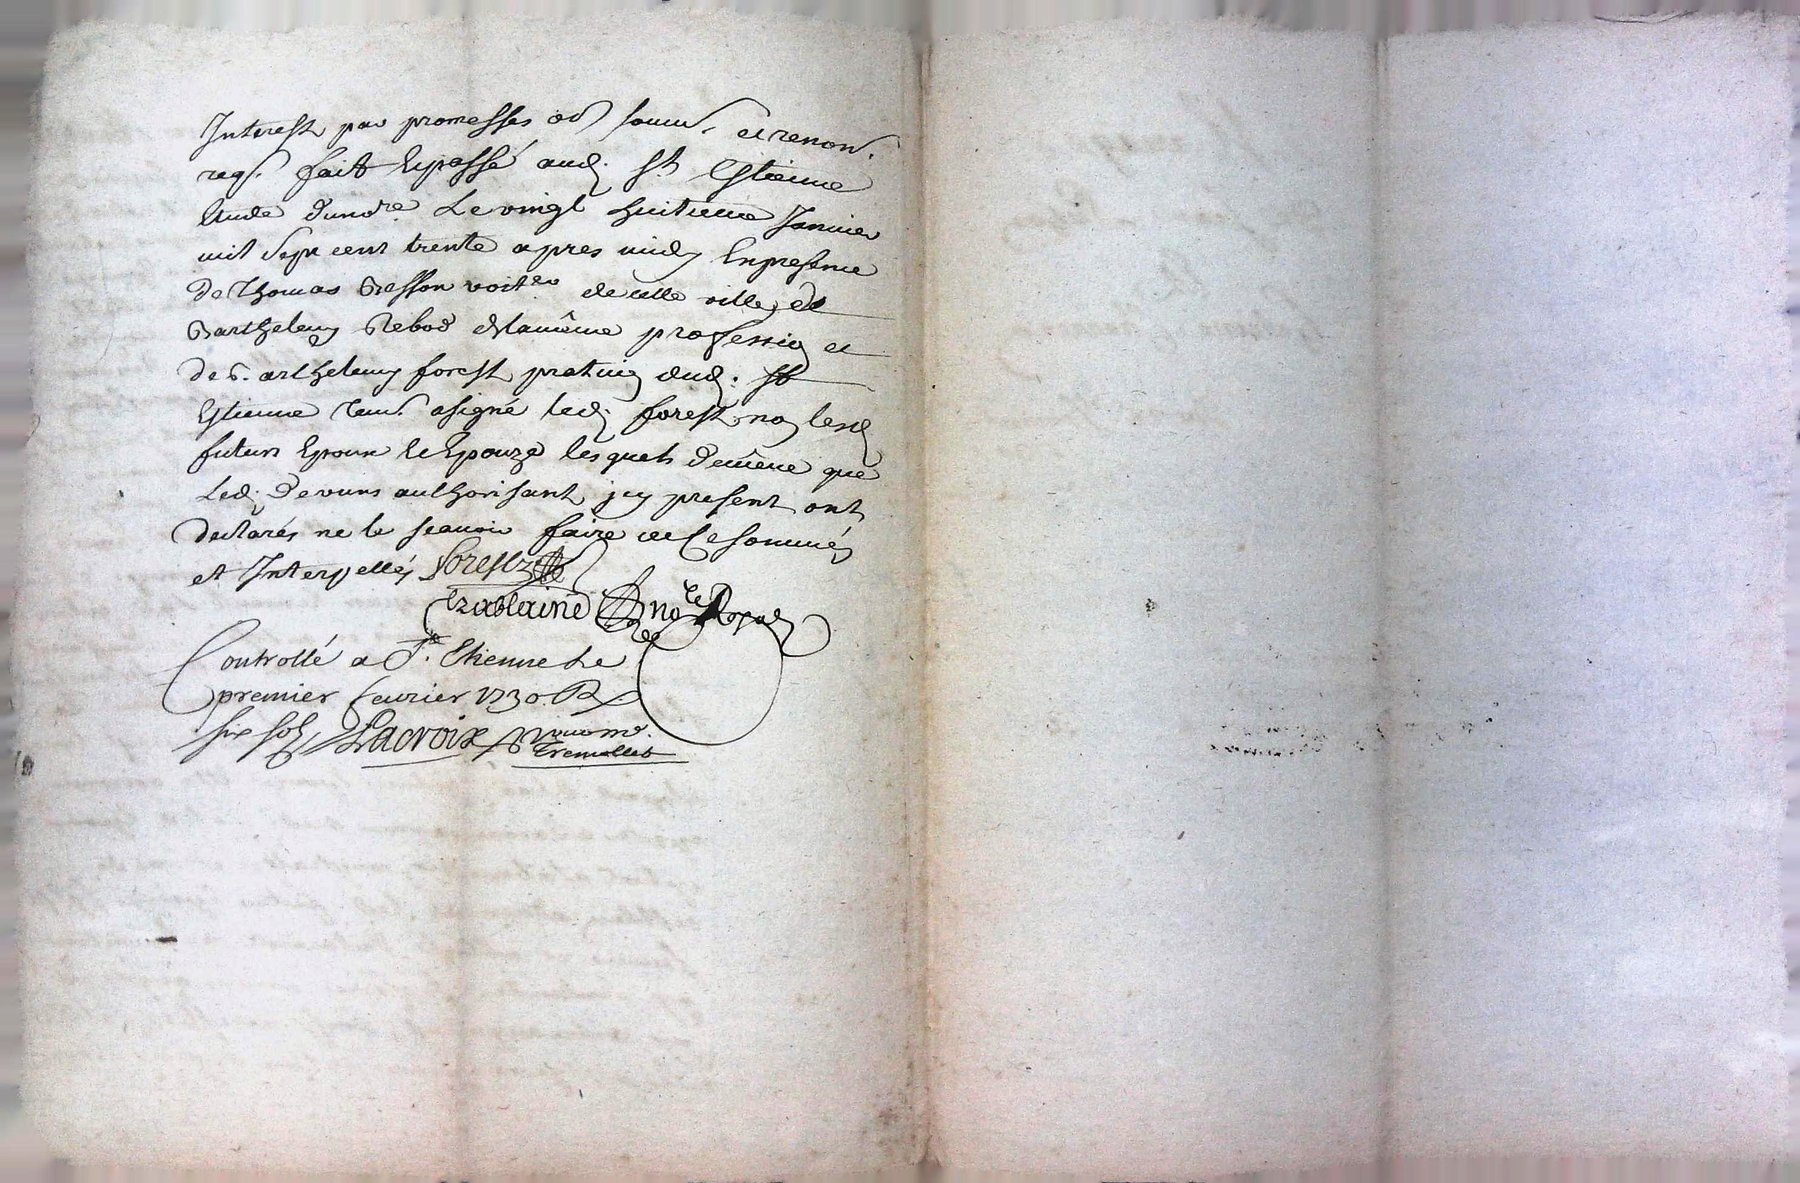 Interest par promesses obs soum. et renon.
reqs. fait & passé aud. St Estienne
Etude dunore Le vingt huitieme Janvier
mil sept cent trente apres midy En presence
de Thomas Besson voitr de cette ville, de
Barthelemy Rebod de la même profession et
de Barthelemy forest praticien dud. St
Estienne tem. a signé led. forest non lesd
futurs Epoux & Epouze lesquels de même que
Led. Devuns authorisant, icy present ont
declarés ne le scavoir faire de ce sommés
et Interpellés Forest
Chablaine nore Royal
Controllé a St. Etienne Le
premier fevrier 1730. R
six sols Lacroix
Tremollet